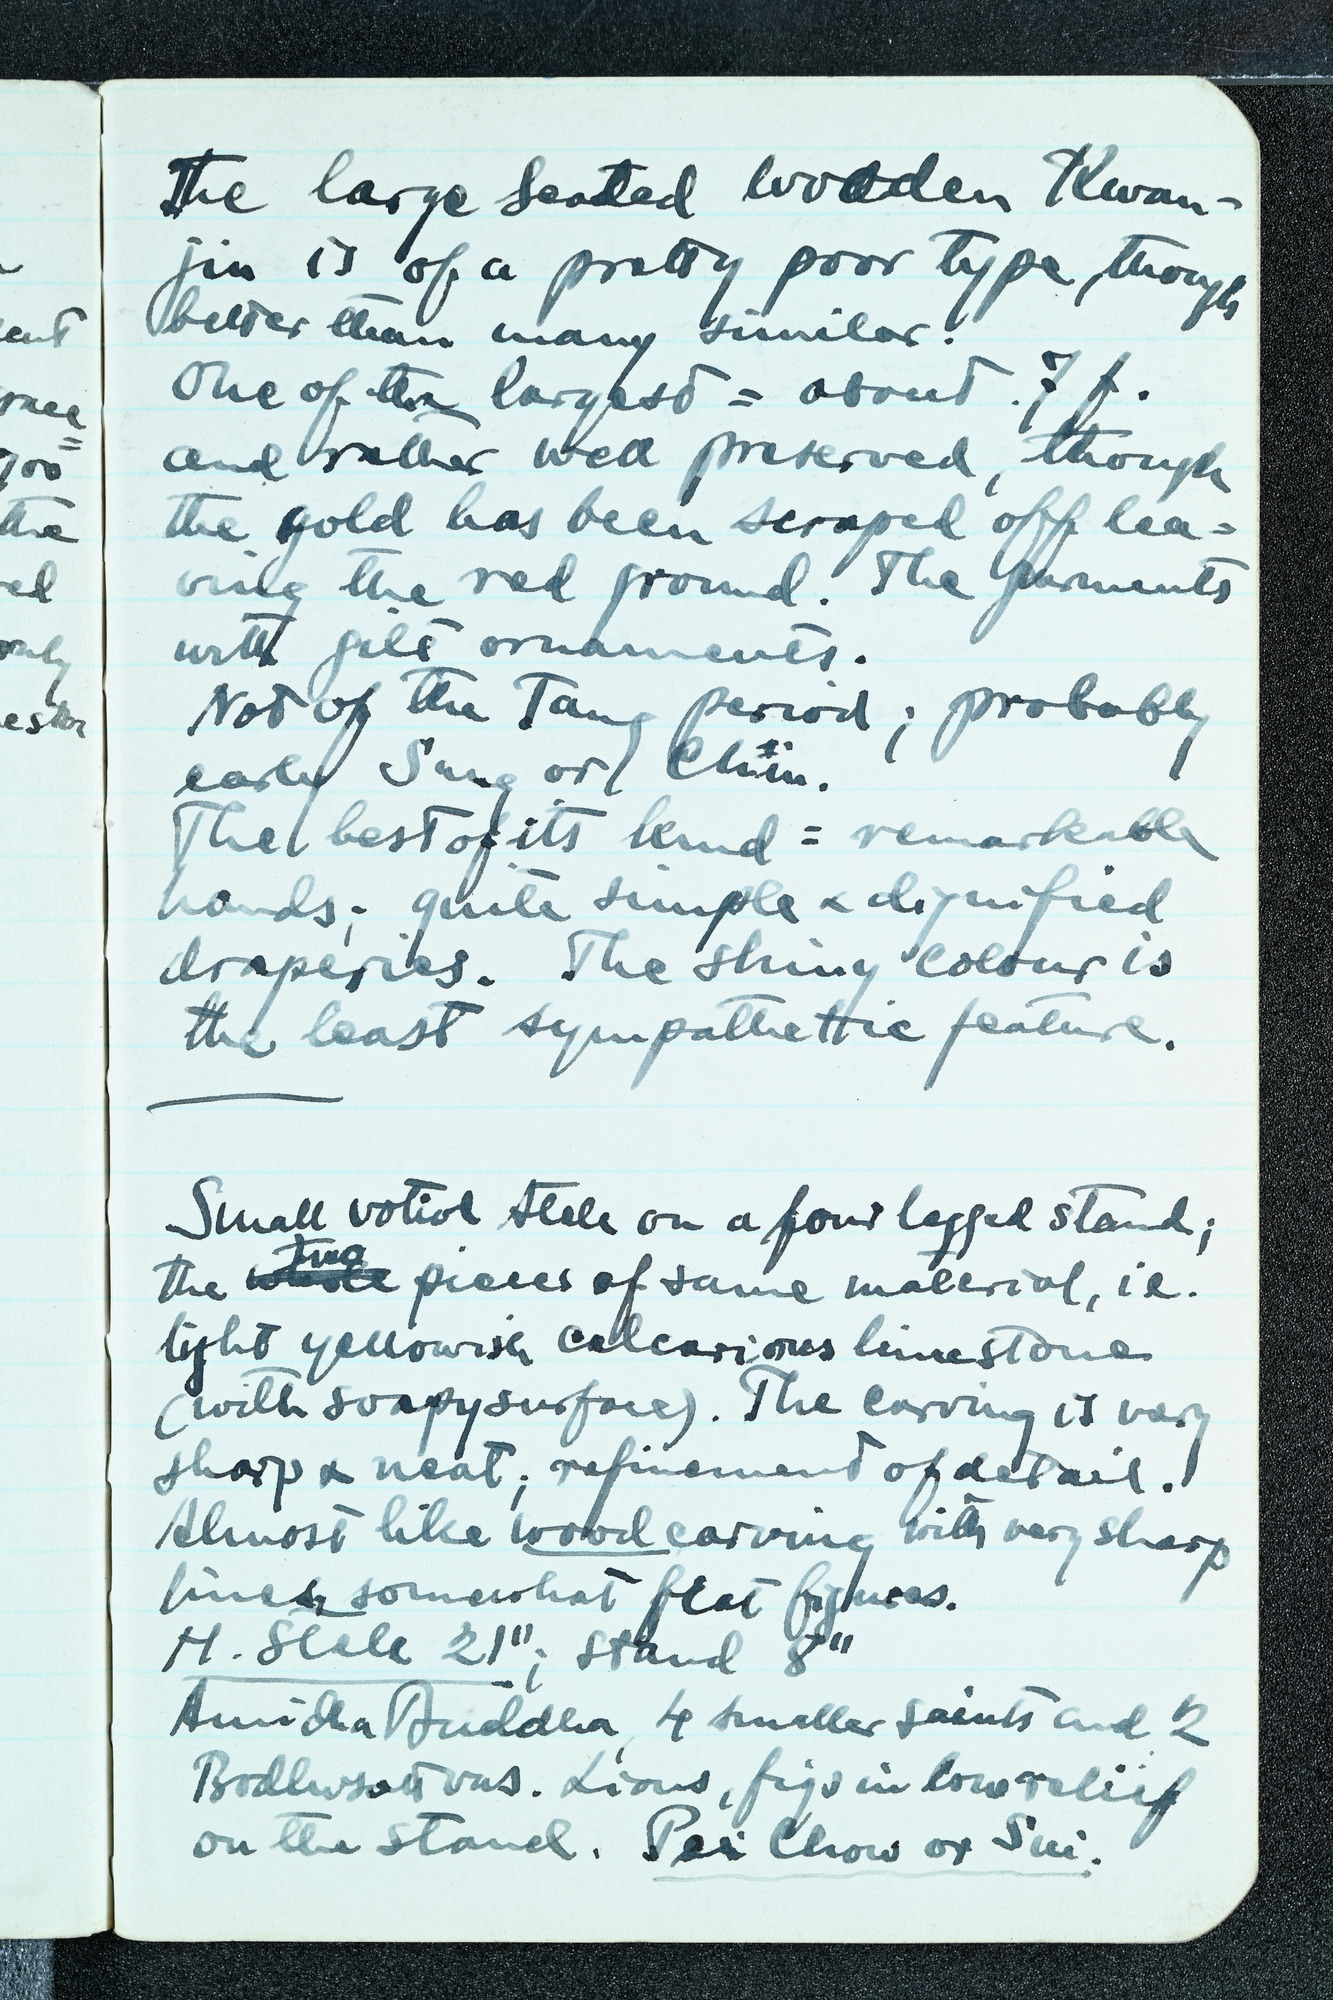 The large seated wooden Kwan-
jin is of a pretty poor type, though
better than many similar.
One of the largest = about 7 f.
and rather well preserved, though
the gold has been scraped off lea=
ving the red ground. The garments
with gilt ornaments.
Not of the Tang period; probably
early Sung or Chin.
The best of its kind = remarkable
hands; quite simple & dignified
draperies. The shiny colour is
the least sympathettic feature.
Small votive stele on a four legged stand;
the two pieces of same material, i.e.
light yellowish calcarious limestone
(with soapy surface). The carving is very
sharp & neat; refinement of detail.
Almost like wood carving with very sharp
lines, somewhat flat figures.
H. Stele 21"; stand 8"
Amidha Buddha, 4 smaller saints and 2
Bodhisattvas. Lions, figs in low reliif
on the stand. Pei Chow or Sui.
ent
race
700
the
ed
only